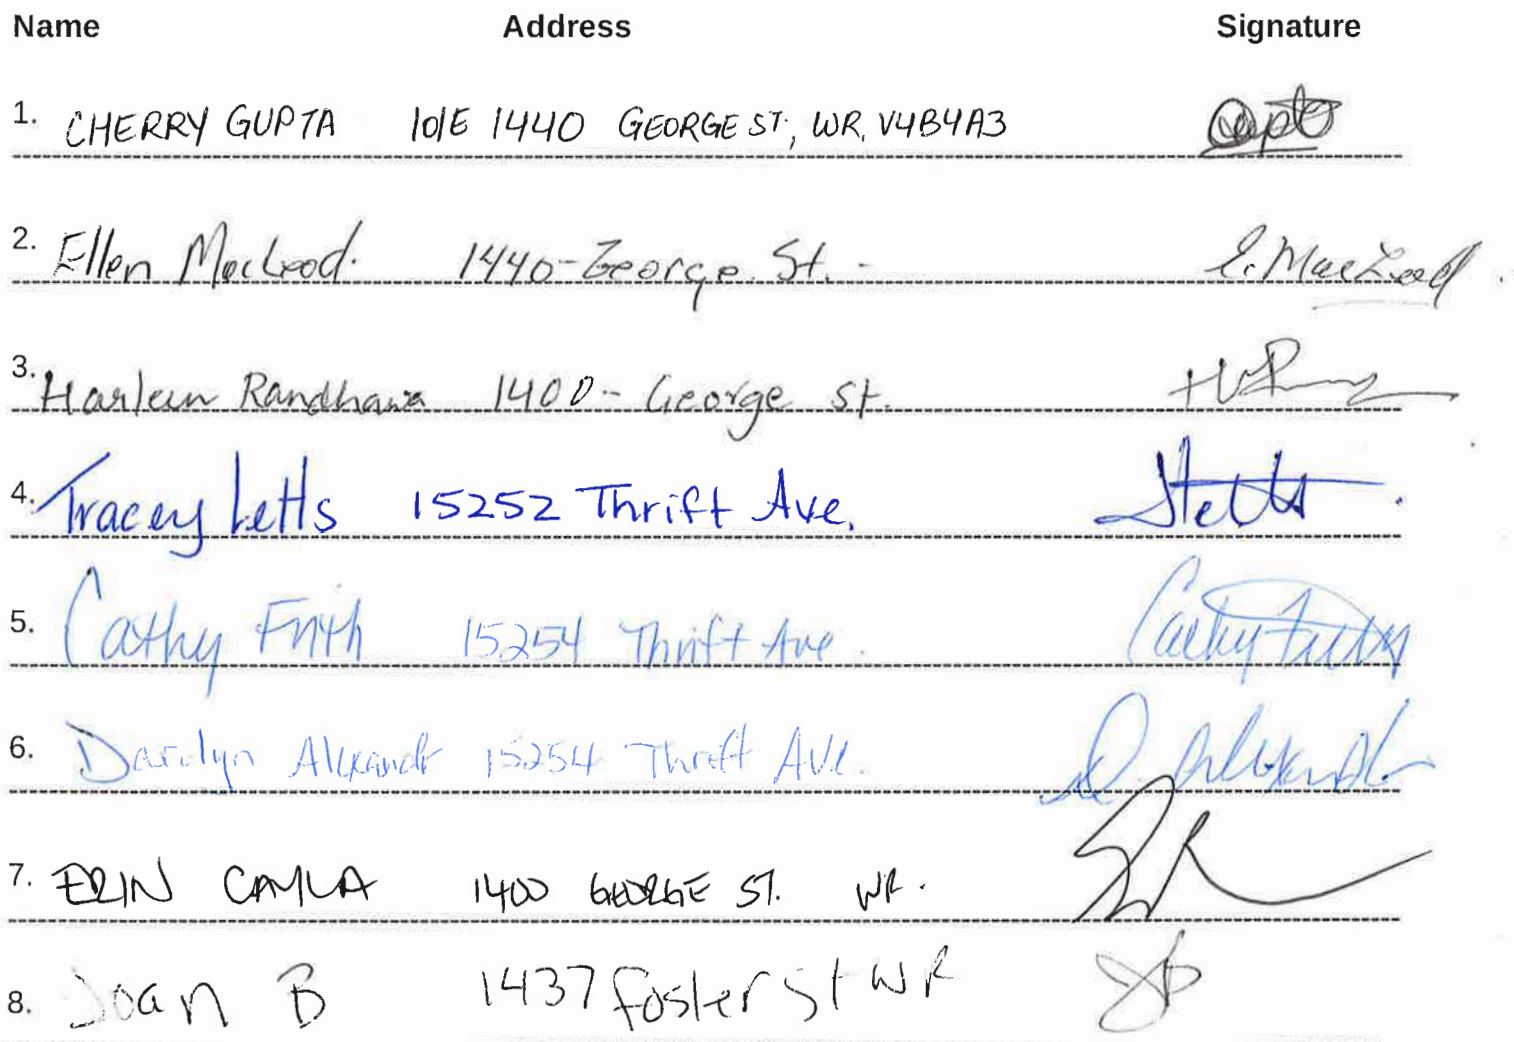 Name Address Signature
1. CHERRY GUPTA 101E 1440 GEORGE ST, WR, V4B4A3
2. Ellen MacLeod. 1440-George St. - E. MacLeod
3. Harleen Randhawa 1400- George st.
4. Tracey Letts 15252 Thrift Ave.
5. Cathy Frith 15254 Thrift Ave. Cathy Frith
6. Darilyn Alexandr 15254 Thrift Ave. D. Alexander
7. ERIN CAYLA 1400 GEORGE ST. WR.
8. Joan B 1437 foster st WR JB